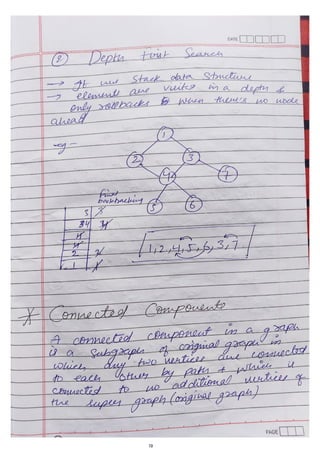 DATE
② Depth First Search
→ It use Stack data Structure
→ elements are visited in a depth &
only rollbacks when there's no node
ahead
eg:-
1
2 3
4 7
5 6
first backtracking
5
34
4
2
1
1,2,4,5,6,3,7
* Connected Components
A connected component in a graph
is a subgraph of original graph in
which any two vertices are connected
to each other by path & which is
connected to no additional vertices of
the super graph (original graph)
PAGE